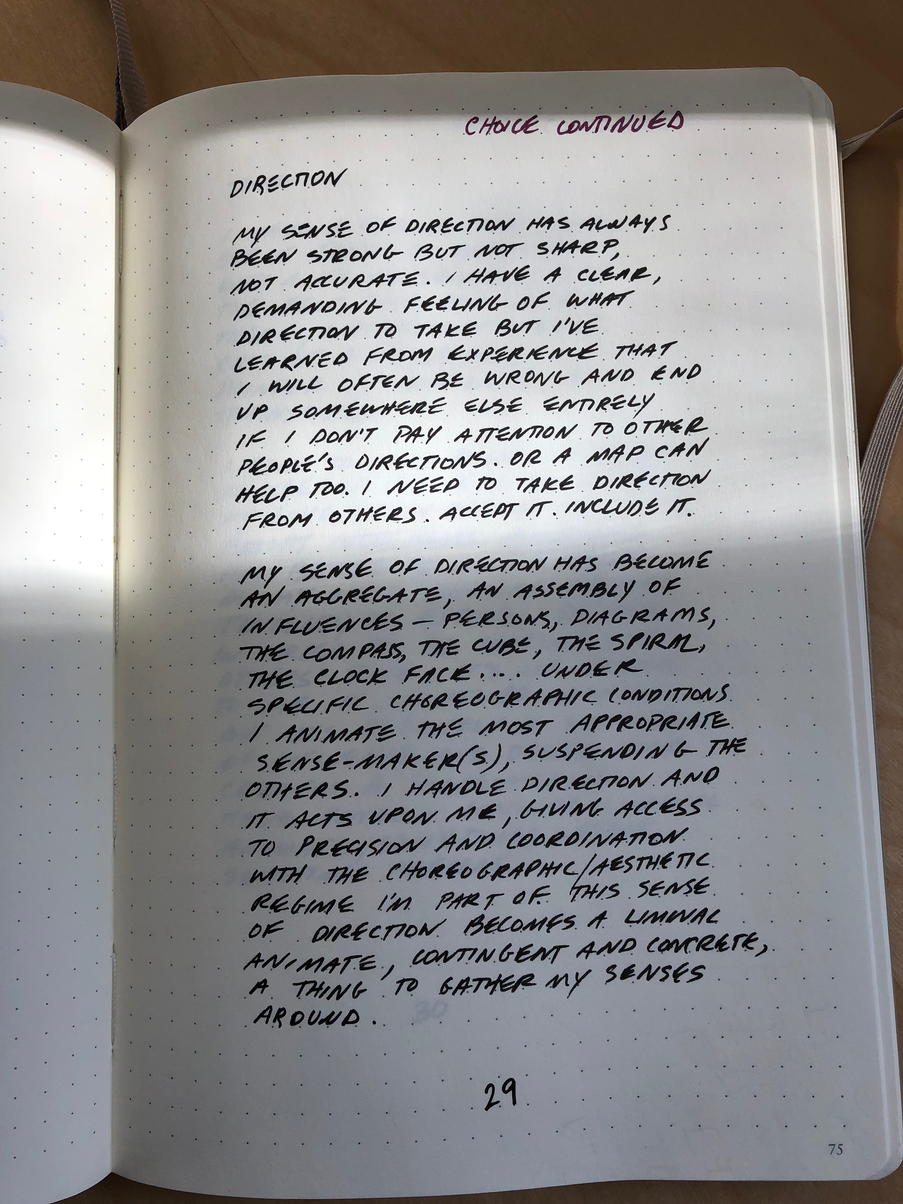 CHOICE CONTINUED
DIRECTION
MY SENSE OF DIRECTION HAS ALWAYS
BEEN STRONG BUT NOT SHARP,
NOT ACCURATE. I HAVE A CLEAR,
DEMANDING FEELING OF WHAT
DIRECTION TO TAKE BUT I'VE
LEARNED FROM EXPERIENCE THAT
I WILL OFTEN BE WRONG AND END
UP SOMEWHERE ELSE ENTIRELY
IF I DON'T PAY ATTENTION TO OTHER
PEOPLE'S DIRECTIONS. OR A MAP CAN
HELP TOO. I NEED TO TAKE DIRECTION
FROM OTHERS. ACCEPT IT. INCLUDE IT.
MY SENSE OF DIRECTION HAS BECOME
AN AGGREGATE, AN ASSEMBLY OF
INFLUENCES — PERSONS, DIAGRAMS,
THE COMPASS, THE CUBE, THE SPIRAL,
THE CLOCK FACE.... UNDER
SPECIFIC CHOREOGRAPHIC CONDITIONS
I ANIMATE THE MOST APPROPRIATE
SENSE-MAKER(S), SUSPENDING THE
OTHERS. I HANDLE DIRECTION AND
IT ACTS UPON ME, GIVING ACCESS
TO PRECISION AND COORDINATION
WITH THE CHOREOGRAPHIC/AESTHETIC
REGIME I'M PART OF. THIS SENSE
OF DIRECTION BECOMES A LIMINAL
ANIMATE, CONTINGENT AND CONCRETE,
A THING TO GATHER MY SENSES
AROUND.
30
29
75